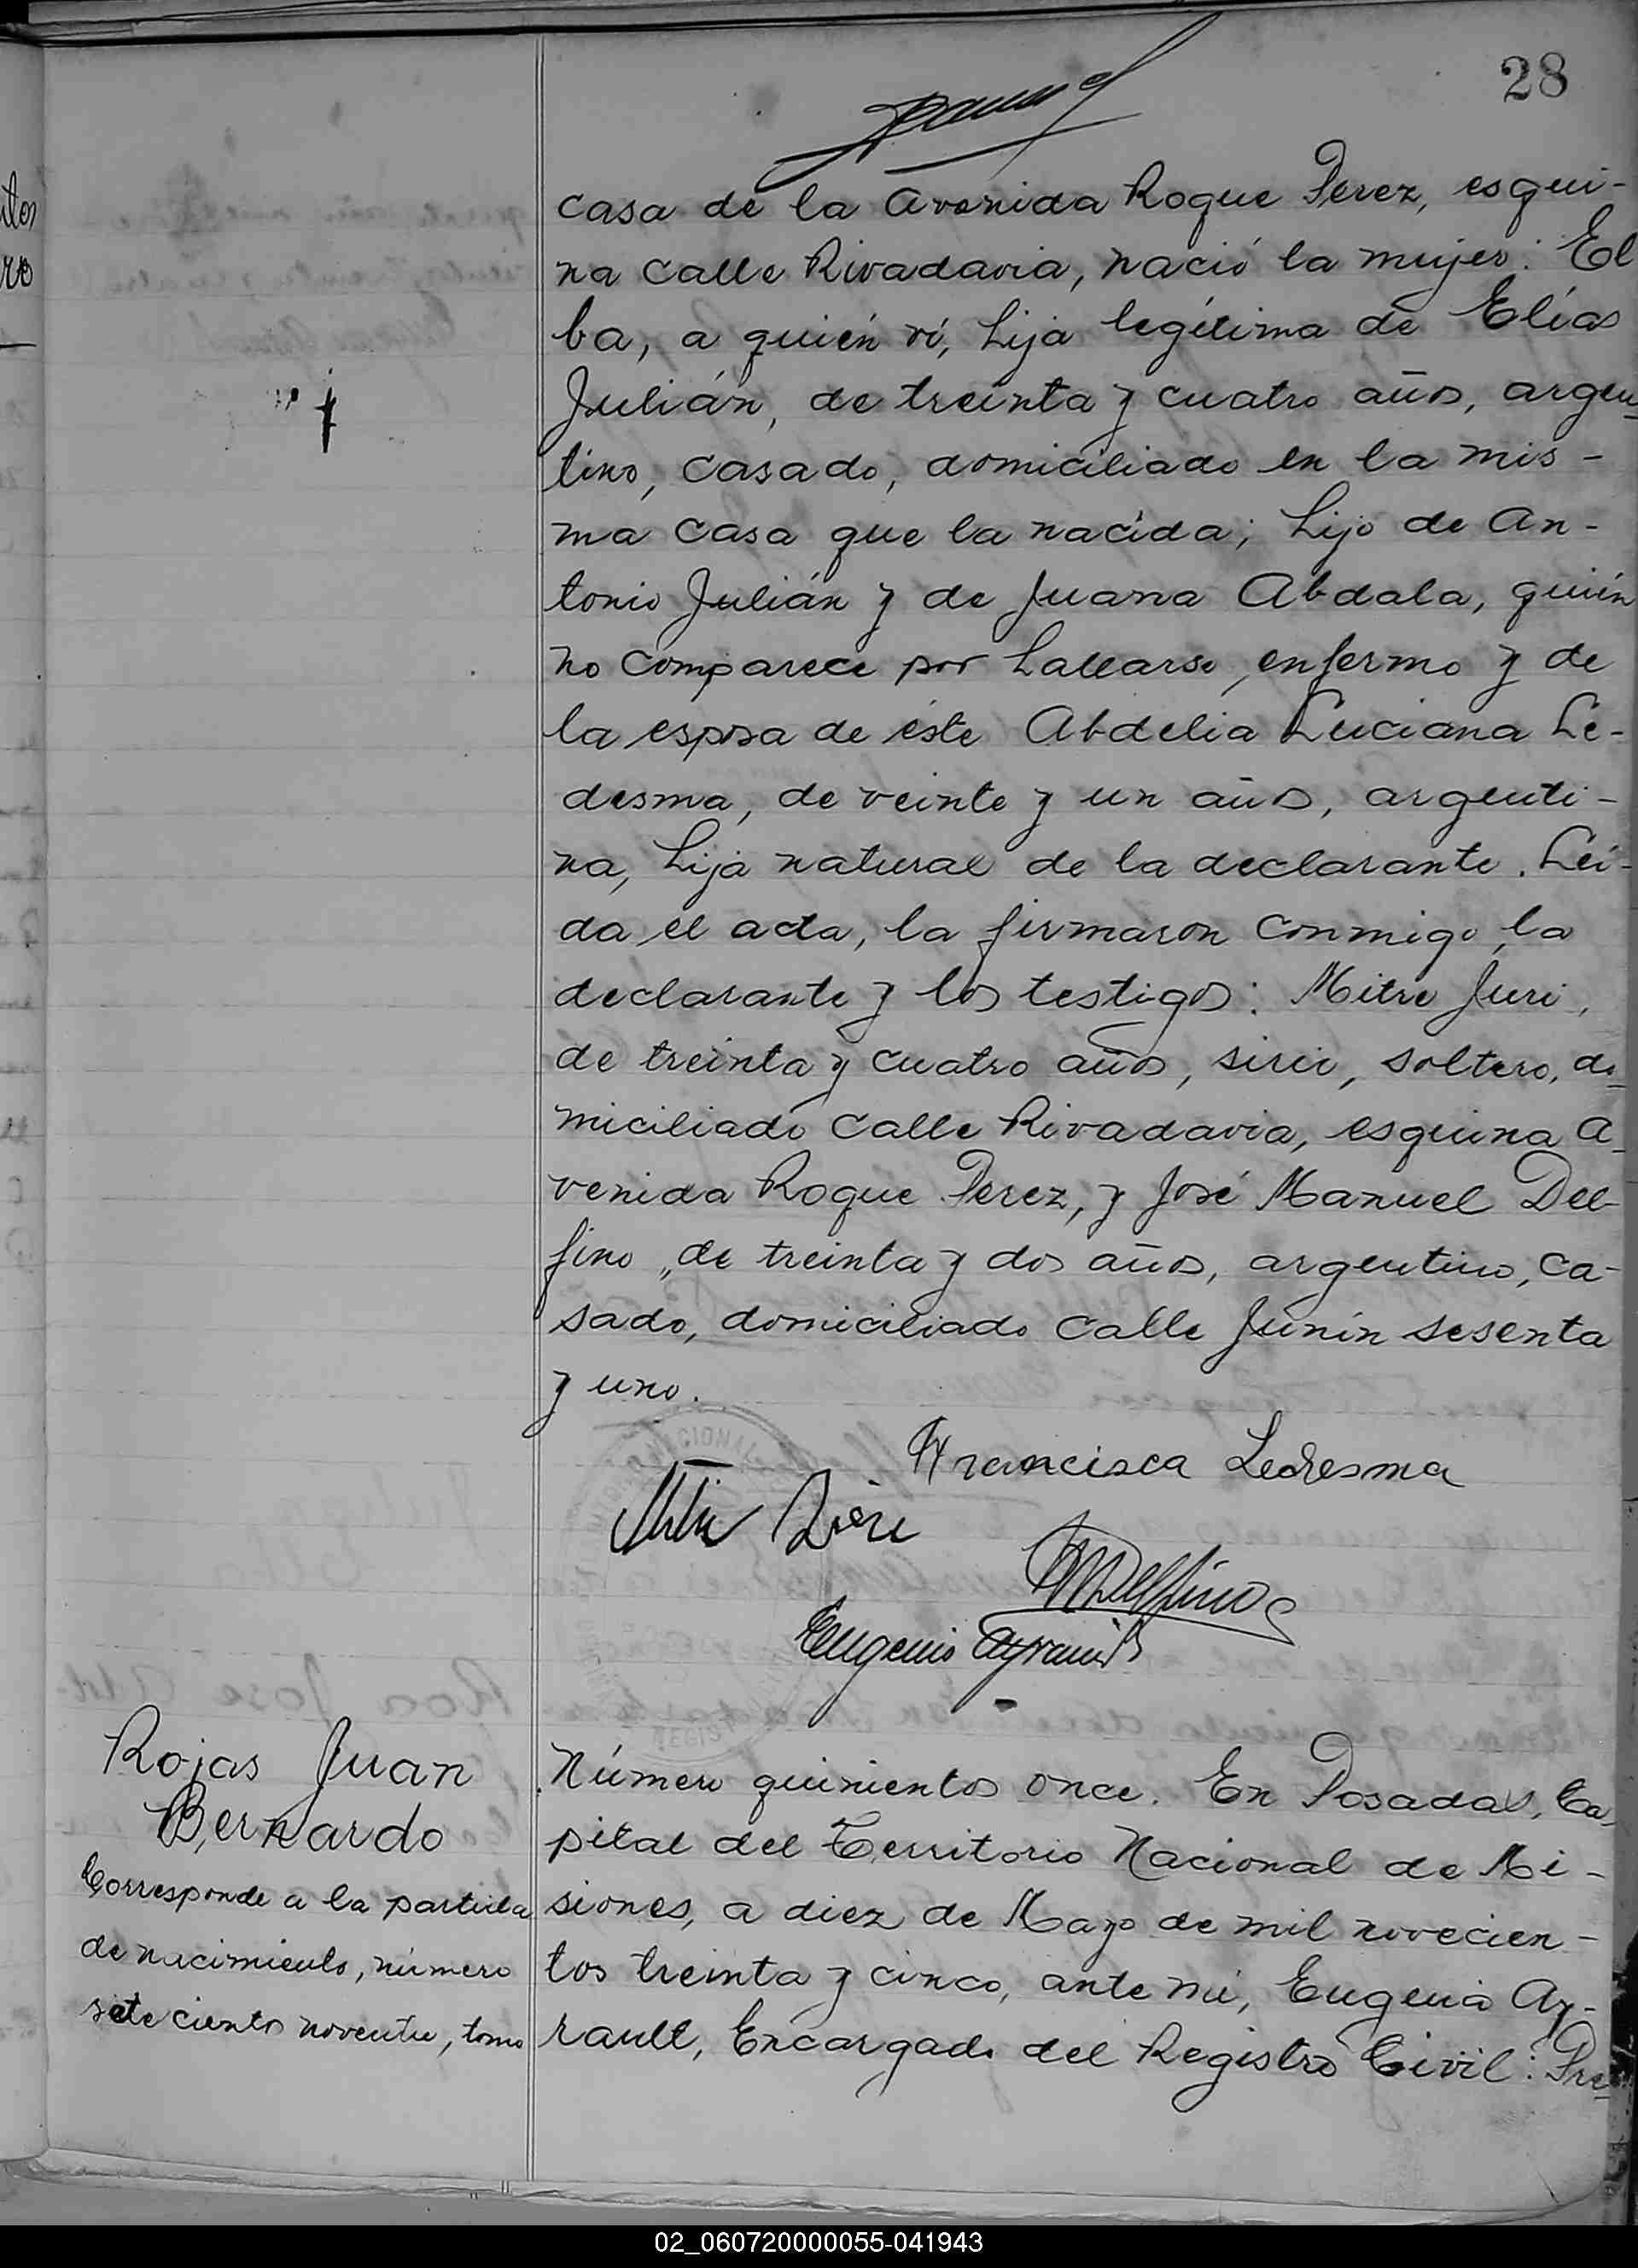 28
casa de la Avenida Roque Perez, esqui-
na calle Rivadavia, nació la mujer: El
ba, a quién ví, hija legítima de Elías
Julián, de treinta y cuatro años, argen-
tino, casado, domiciliado en la mis-
ma casa que la nacida; hijo de An-
tonio Julián y de Juana Abdala, quién
no comparece por hallarse enfermo y de
la esposa de éste Abdelia Luciana Le-
desma, de veinte y un años, argenti-
na, hija natural de la declarante. Leí-
da el acta, la firmaron conmigo, la
declarante y los testigos: Mitre Juri,
de treinta y cuatro años, sirio, soltero, do-
miciliado calle Rivadavia, esquina A-
venida Roque Perez, y José Manuel Del-
fino, de treinta y dos años, argentino, ca-
sado, domiciliado calle Junín sesenta
y uno.
Francisca Ledesma
JMDelfino
Eugenio Ayrault
Rojas Juan
Bernardo
Corresponde a la partida
de nacimiento, número
sete cientos noventa, tomo
Número quinientos once. En Posadas, Ca-
pital del Territorio Nacional de Mi-
siones, a diez de Mayo de mil novecien-
tos treinta y cinco, ante mí, Eugenio Ay-
rault, Encargado del Registro Civil: Pre-
02_060720000055-041943